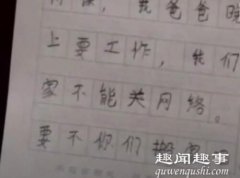 我爸爸晚
上要工作，我们
家不能关网络。
要不你们搬
趣闻趣事
quwengushi.com